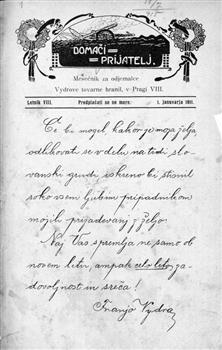 DOMAČI
PRIJATELJ.
Mesečnik za odjemalce
Vydrove tovarne hranil, v Pragi VIII.
Letnik VIII. Predplačati se ne more. 1. januvarja 1911.
Če bi mogel, kakor je moja želja
odlikovati se v delu na tudi slo-
vanski iskreno bi stisnil
roko vsem ljubim pripadnikom
mojih prijadevanj z željo:
Naj Vas spremlja ne samo ob
novem letu, ampak celo leto za-
dovoljnost in sreča!
Franjo Vydra